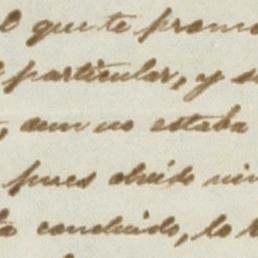 que te prom
particular, y s
, aun no estaba
pues olvido
concluido, lo